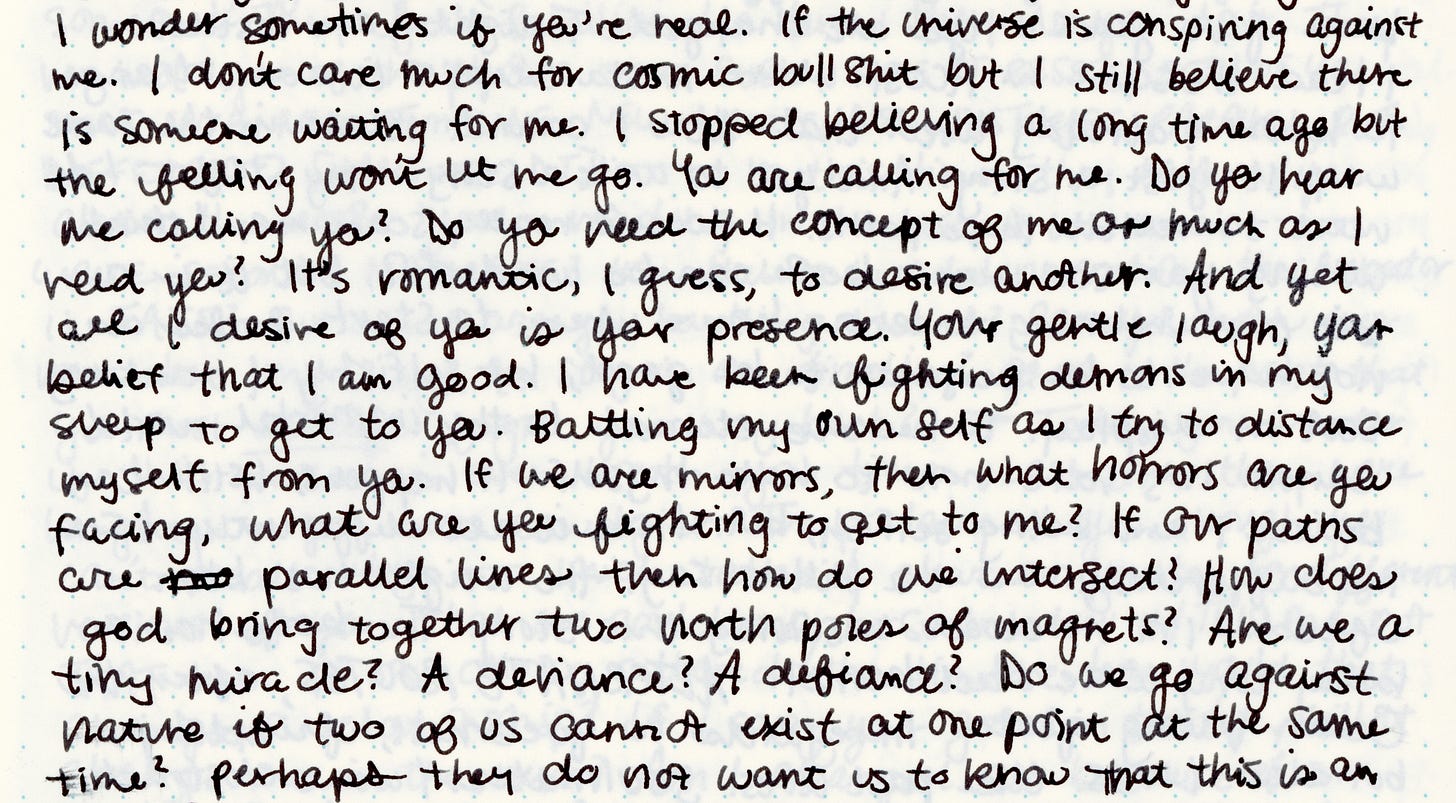 I wonder sometimes if you're real. If the universe is conspiring against
me. I don't care much for cosmic bullshit but I still believe there
is someone waiting for me. I stopped believing a long time ago but
the feeling won't let me go. You are calling for me. Do you hear
me calling you? Do you need the concept of me as much as I
need you? It's romantic, I guess, to desire another. And yet
all I desire of you is your presence. Your gentle laugh, your
belief that I am good. I have been fighting demons in my
sleep to get to you. Battling my own self as I try to distance
myself from you. If we are mirrors, then what horrors are you
facing, what are you fighting to get to me? If our paths
are parallel lines then how do we intersect? How does
god bring together two north poles of magnets? Are we a
tiny miracle? A deviance? A defiance? Do we go against
nature if two of us cannot exist at one point at the same
time? Perhaps they do not want us to know that this is an